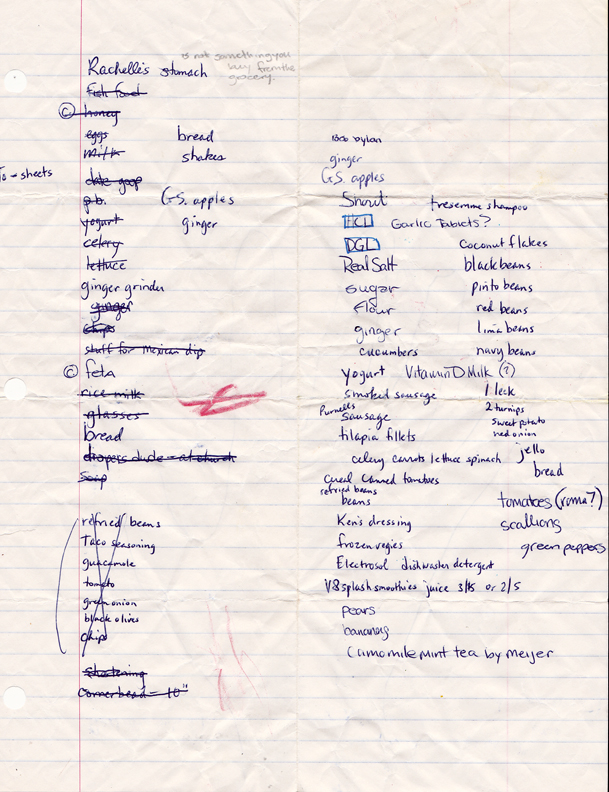 is not something you
buy from the
grocery.
Rachelle's stomach
fish food
© honey
eggs bread
milk shakes
To - sheets
date goop
p.b. G.S. apples
yogurt ginger
celery
lettuce
ginger grinder
ginger
chips
stuff for mexican dip
© feta
rice milk
glasses
bread
diapers dude - at church
Soap
refried beans
Taco seasoning
guacamole
tomato
green onion
black olives
chips
shortening
cornerbead - 10"
ginger
G.S. apples
Snout tresemme shampoo
HCL Garlic Tablets?
DGL coconut flakes
Real Salt black beans
sugar pinto beans
flour red beans
ginger lima beans
cucumbers navy beans
yogurt Vitamin D Milk (?)
smoked sausage 1 leek
Purnell's 2 turnips
sausage sweet potato
red onion
tilapia fillets
jello
celery carrots lettuce spinach
bread
cereal canned tomatoes
refried beans
beans tomatoes (roma?)
Ken's dressing scallions
frozen vegies green peppers
Electrosol dishwasher detergent
V8 splash smoothies juice 3/$5 or 2/5
pears
bananas
Camomile mint tea by meijer